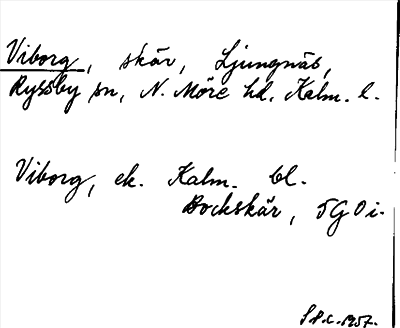 Viborg, skär, Ljungnäs,
Ryssby sn, N. Möre hd, Kalm. l.
Viborg, ek. Kalm. bl.
Bockskär, 5G 0 i.
1957.